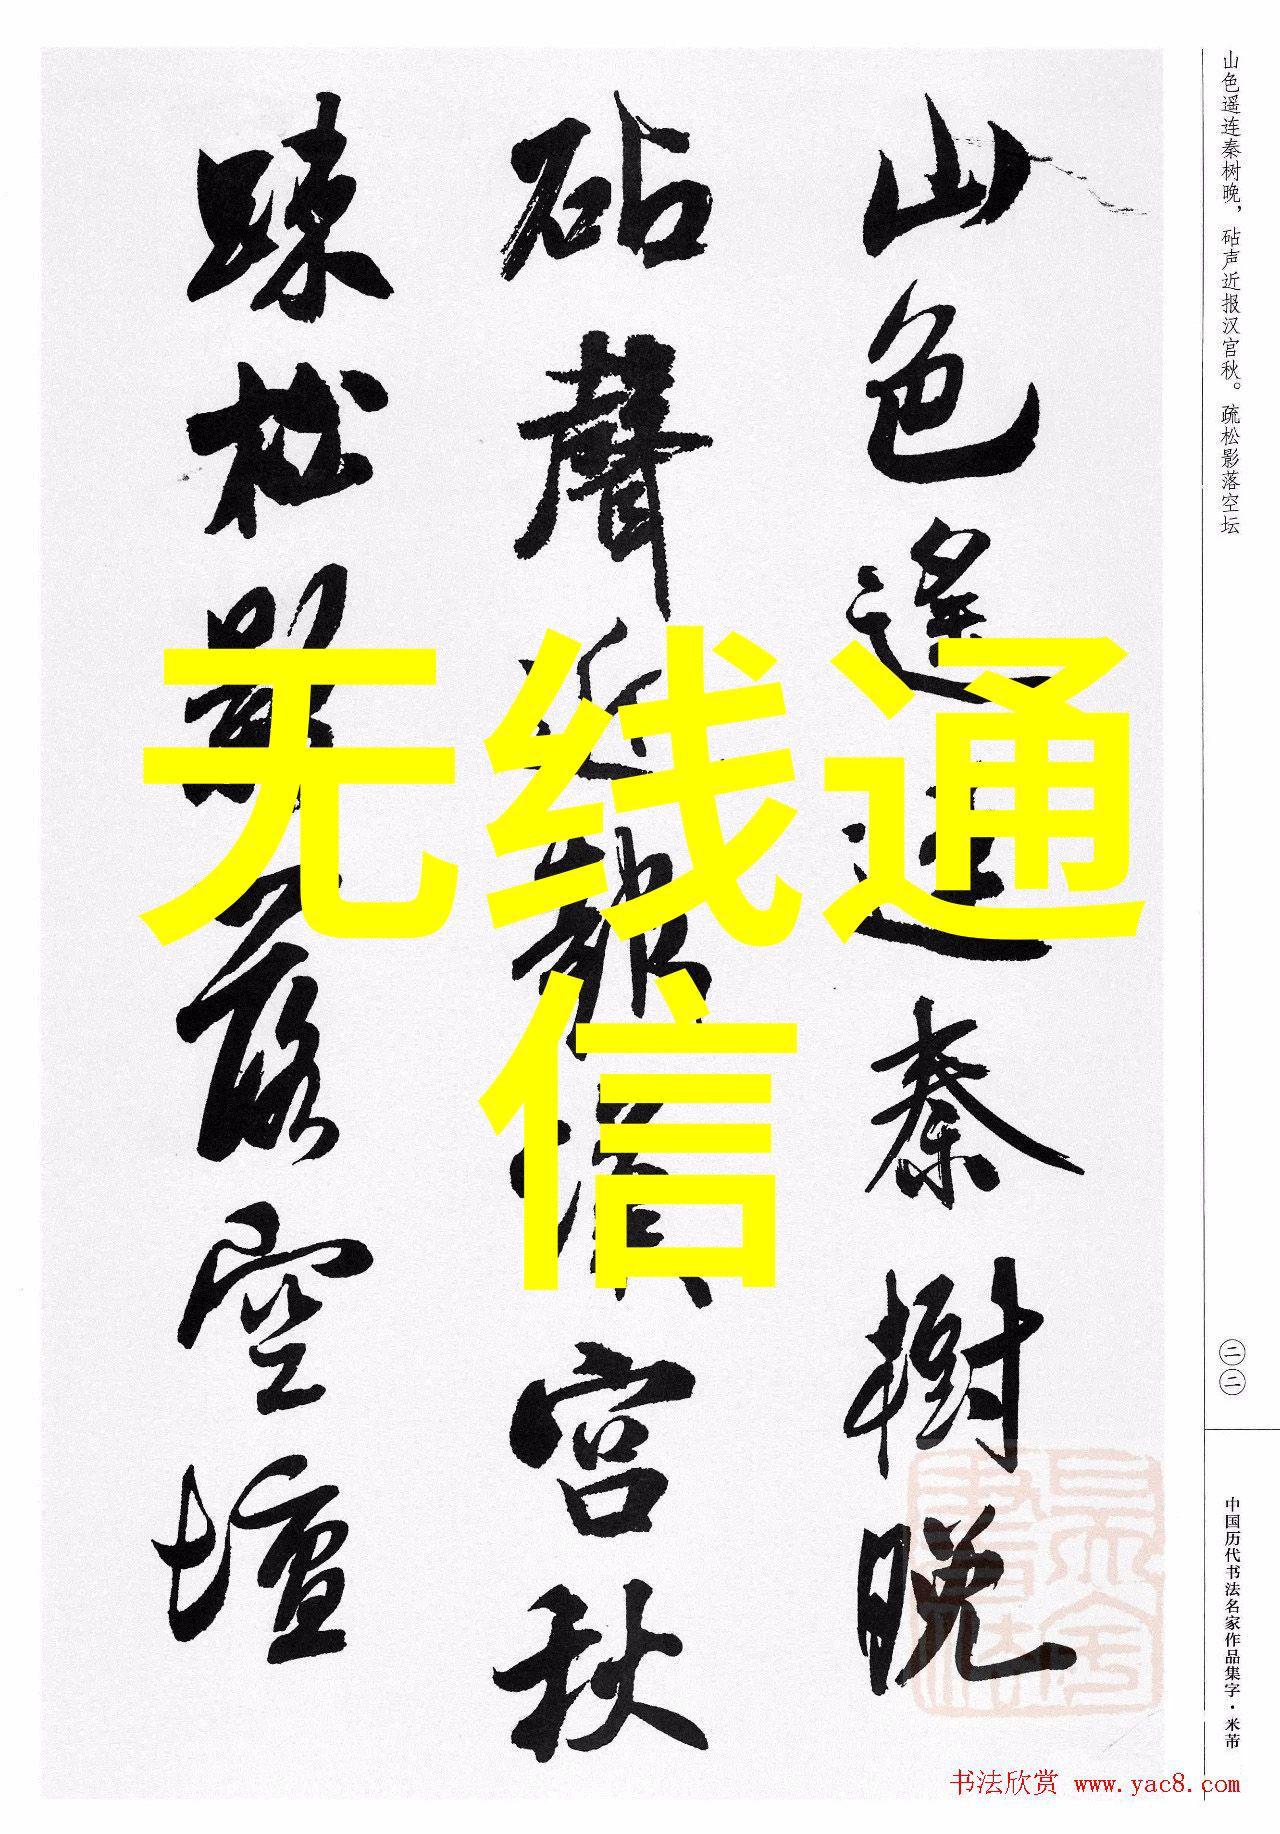 山色遥连秦树晚，砧声近报汉宫秋。疏松影落空坛
二二
中国历代书法名家作品集字·米芾
山色遥连秦樹晚
砧聲近報漢宮秋
疎松影落空壇
无线通
信
书法欣赏 www.yac8.com